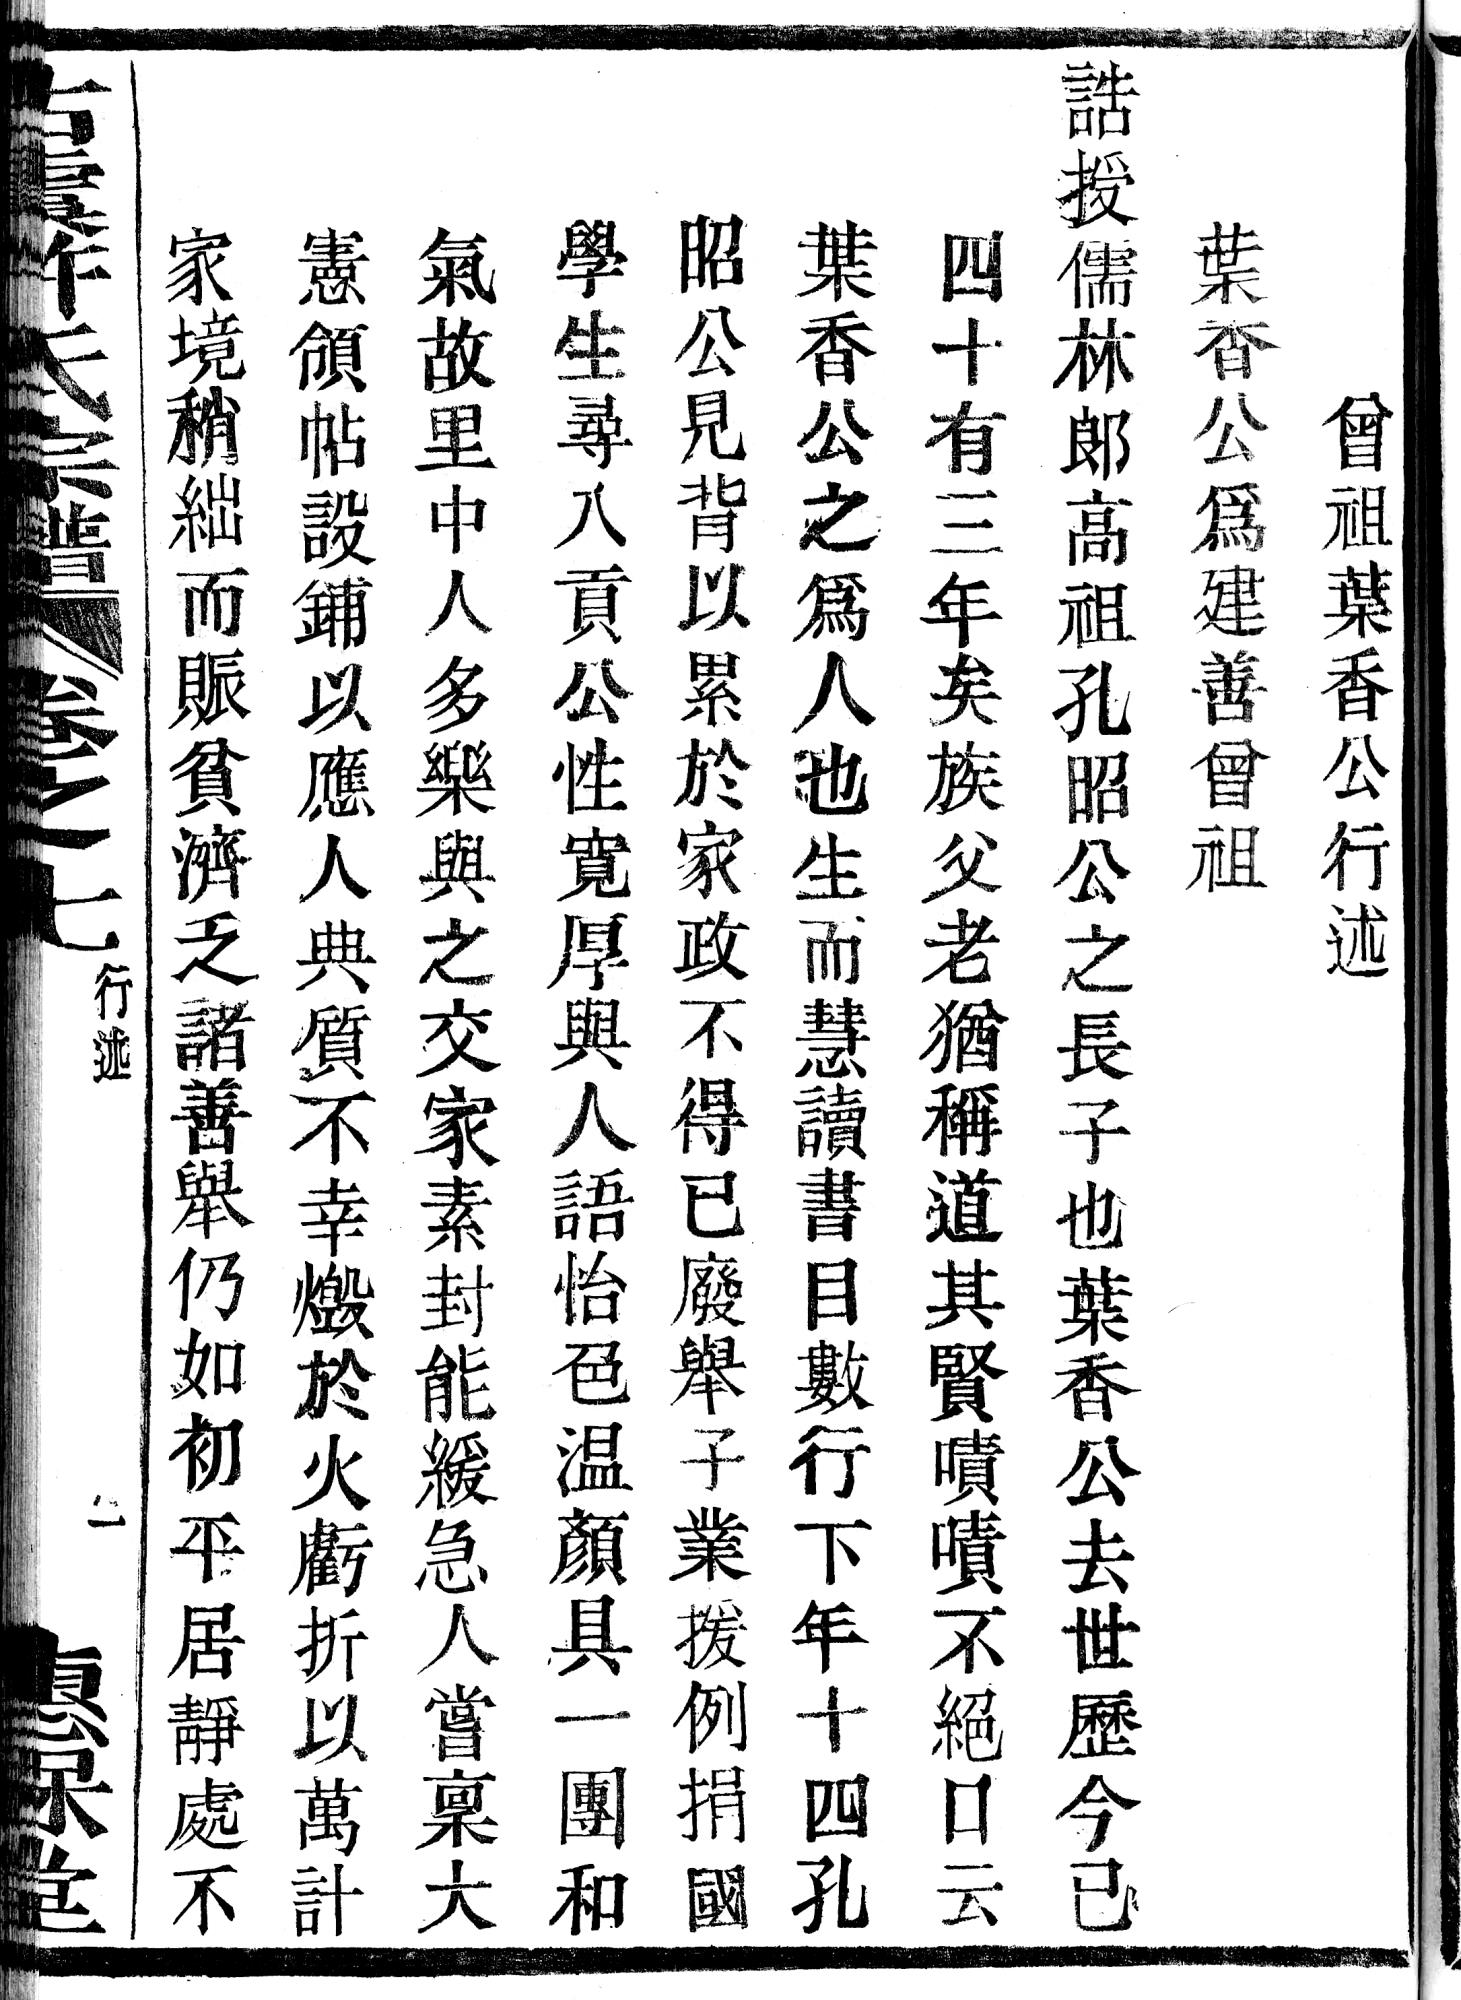 曾祖葉香公行述
葉香公爲建善曾祖
誥授儒林郎高祖孔昭公之長子也葉香公去世歷今已
四十有三年矣族父老猶稱道其賢嘖嘖不絕口云
葉香公之爲人也生而慧讀書目數行下年十四孔
昭公見背以累於家政不得已廢舉子業援例捐國
學生尋入貢公性寬厚與人語怡色温顏具一團和
氣故里中人多樂與之交家素封能緩急人嘗稟大
憲頒帖設鋪以應人典質不幸燬於火虧折以萬計
家境稍絀而賑貧濟乏諸善舉仍如初平居靜處不
氏宗譜
卷之七
行述
惠保堂